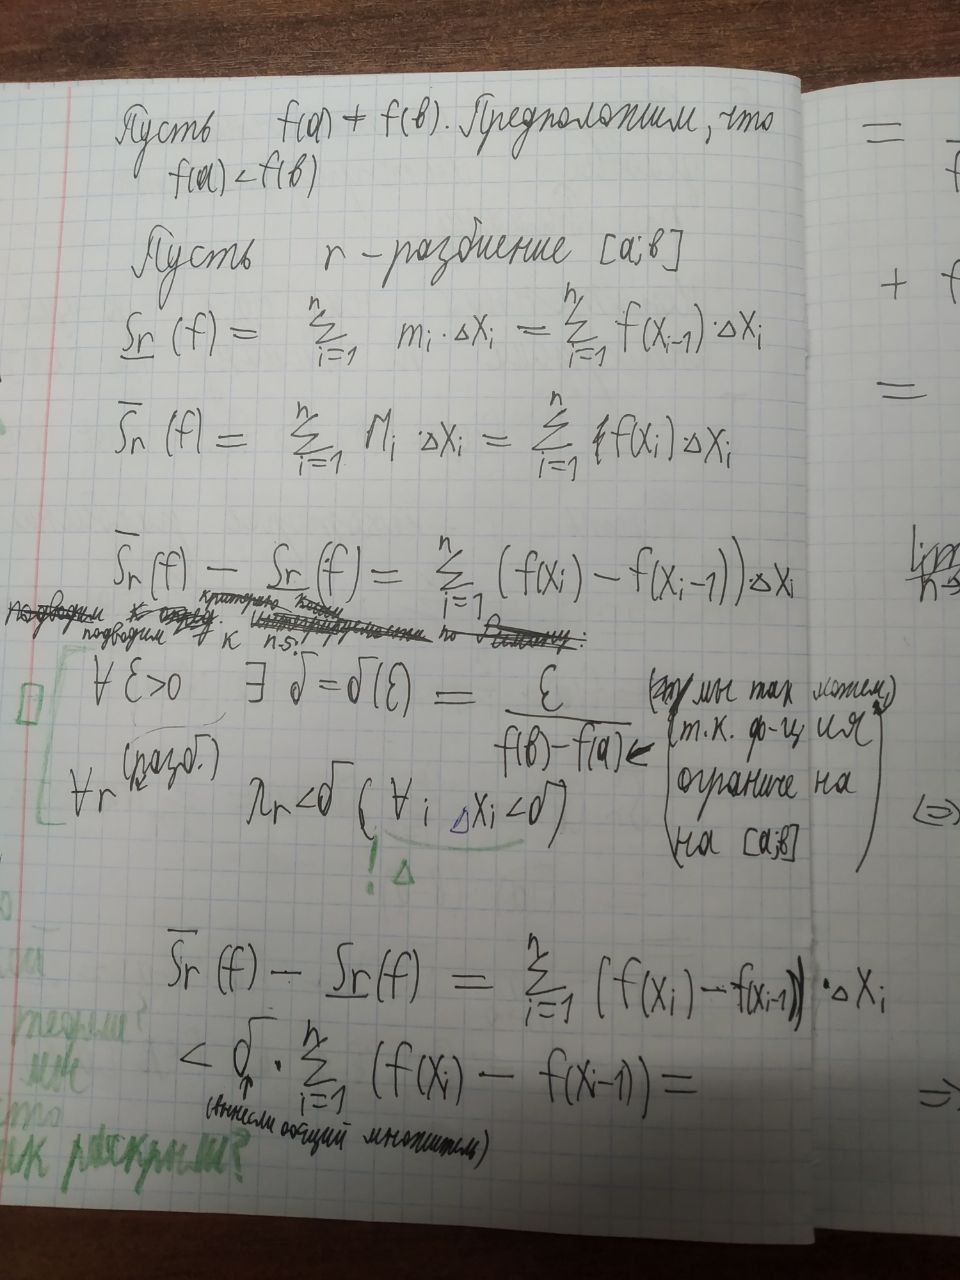 Пусть f(a) ≠ f(в). Предположим, что
f(a) < f(в)
Пусть r – разбиение [a;в]
S̲r (f) = ∑ᵢ₌₁ⁿ mᵢ · ΔXᵢ = ∑ᵢ₌₁ⁿ f(xᵢ₋₁) · ΔXᵢ
S̄r (f) = ∑ᵢ₌₁ⁿ Mᵢ · ΔXᵢ = ∑ᵢ₌₁ⁿ f(xᵢ) · ΔXᵢ
S̄r (f) – S̲r (f) = ∑ᵢ₌₁ⁿ (f(xᵢ) – f(xᵢ₋₁)) · ΔXᵢ
критерию Коши
подводим к опред. интегрируемости по Риману:
подводим к п.5:
∀ ε>0 ∃ δ = δ(ε) = ε / (f(в) – f(a))
(мы так можем,
т.к. ф-ция
ограничена
на [a;в])
∀r (разб.) λr < δ (∀i ΔXᵢ < δ)
! Δ
S̄r (f) – S̲r (f) = ∑ᵢ₌₁ⁿ (f(xᵢ) – f(xᵢ₋₁)) · ΔXᵢ
< δ · ∑ᵢ₌₁ⁿ (f(xᵢ) – f(xᵢ₋₁)) =
(вынесли общий множитель)
раскрыли?
=
+ f
=
lim
n→
(=)
=>